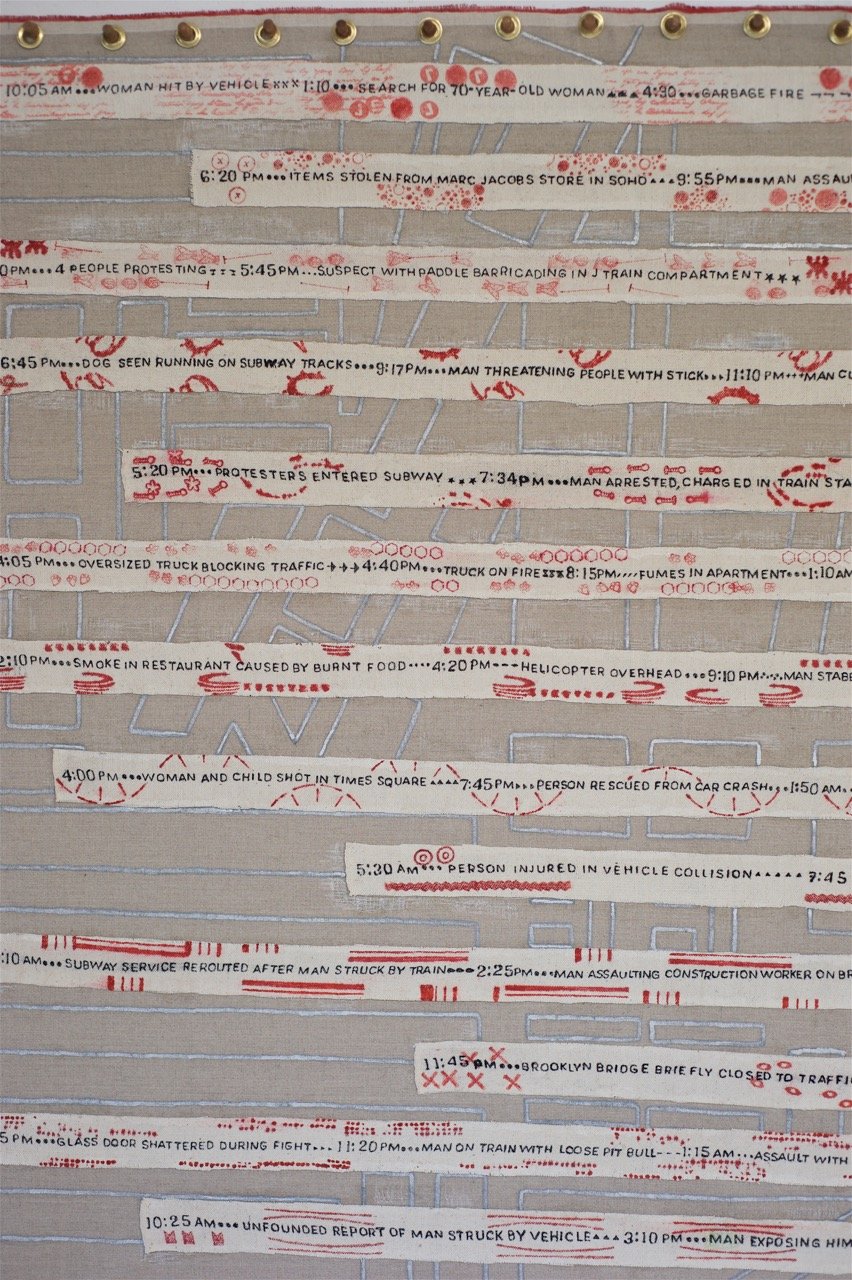 10:05 AM...WOMAN HIT BY VEHICLE xxx 1:10...SEARCH FOR 70-YEAR-OLD WOMAN▲▲▲ 4:30...GARBAGE FIRE →→→
6:20 PM...ITEMS STOLEN FROM MARC JACOBS STORE IN SOHO▲▲▲9:55PM...MAN ASSAU
0PM...4 PEOPLE PROTESTING::::5:45PM...SUSPECT WITH PADDLE BARRICADING IN J TRAIN COMPARTMENT★★★
6:45 PM...DOG SEEN RUNNING ON SUBWAY TRACKS...9:17PM...MAN THREATENING PEOPLE WITH STICK...11:10 PM+++MAN CL
5:20 PM...PROTESTERS ENTERED SUBWAY ★★★7:34PM...MAN ARRESTED, CHARGED IN TRAIN STA
4:05 PM...OVERSIZED TRUCK BLOCKING TRAFFIC→→→4:40PM...TRUCK ON FIRExxx8:15PM,,,,FUMES IN APARTMENT...1:10AM
2:10PM...SMOKE IN RESTAURANT CAUSED BY BURNT FOOD....4:20 PM---HELICOPTER OVERHEAD...9:10 PM∴∴MAN STABB
4:00PM...WOMAN AND CHILD SHOT IN TIMES SQUARE▲▲▲▲7:45PM...PERSON RESCUED FROM CAR CRASH...1:50 AM..
5:30 AM...PERSON INJURED IN VEHICLE COLLISION▲▲▲▲▲ 7:45
:10 AM...SUBWAY SERVICE REROUTED AFTER MAN STRUCK BY TRAIN...2:25PM...MAN ASSAULTING CONSTRUCTION WORKER ON BR
11:45 PM...BROOKLYN BRIDGE BRIEFLY CLOSED TO TRAFFI
5 PM...GLASS DOOR SHATTERED DURING FIGHT...11:20PM...MAN ON TRAIN WITH LOOSE PIT BULL---1:15 AM...ASSAULT WITH
10:25 AM...UNFOUNDED REPORT OF MAN STRUCK BY VEHICLE▲▲▲ 3:10 PM...MAN EXPOSING HIM